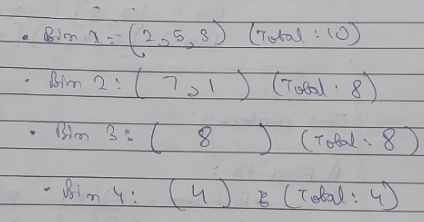 • Bin 1:- (2,5,3) (Total : 10)
• Bin 2: (7,1) (Total: 8)
• Bin 3: (8) (Total: 8)
• Bin 4: (4) (Total: 4)